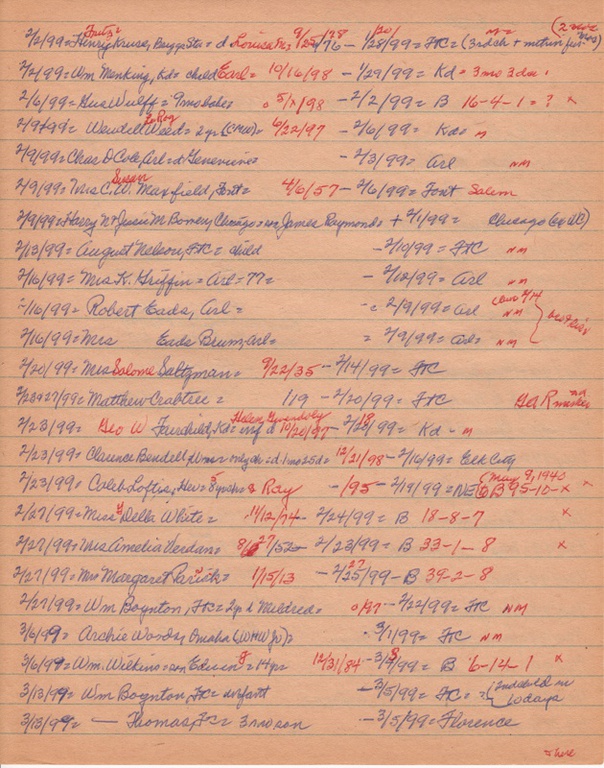 2/2/99= Henry Krause, Briggs Sta= d Louisa 9/25/76 - 1/28/99= FtC= (3rd ch +
2/2/99= Wm Menking, Kd= child Earl= 10/16/98 - 1/29/99= Kd= 3 mo 3 da
2/6/99= Gus Wulff= 9 mo babe= 5/ /98 - 2/2/99= B 16-4-1=? x
2/9/99= Wendell Weed= 2 yr (CMW)= 6/22/97 - 2/6/99= Kd= m
2/9/99= Chas D Cole, Arl= d Genevieve= - 2/3/99= Arl NM
Susan
2/9/99= Mrs C.W. Maxfield, Font= 4/6/57 - 2/6/99= Font Salem
2/9/99= Harry N+Jusie M Bomery, Chicago= son James Raymond= + 2/1/99= Chicago
2/13/99= August Nelson, FtC= child - 2/10/99= FtC NM
2/16/99= Mrs K. Griffin= Arl= 77= - 2/12/99= Arl NM
2/16/99= Robert Eads, Arl= = 2/9/99= Arl NM
2/16/99= Mrs Eads Brum, Arl= = 2/9/99= Arl= NM
2/20/99= Mrs Salome Saltzman= 9/22/35 - 2/14/99= FtC
2/23+27/99= Matthew Crabtree= 119 - 2/20/99= FtC GAR
2/23/99= Geo W Fairchild, Kd= inf d 10/20/97 - 2/18/99= Kd - m
2/23/99= Clarence Bendell, Wm= only ch= d 1 mo 25 d= 12/21/98 - 2/16/99= Elk City
May 9, 1940
2/23/99= Caleb Loftis, Hew= s Ray - /95 - 2/19/99= B 95-10 - x x
2/27/99= Miss Della White= 11/12/74 - 2/24/99= B 18-8-7 x
2/27/99= Mrs Amelia Verdan= 8/27/52 - 2/23/99= B 33-1-8 x
2/27/99= Mrs Margaret Parish= 1/15/13 - 2/25/99 - B 39-2-8
2/27/99= Wm Boynton, FtC= 2 yr d Mildred= 0/97 - 2/22/99= FtC NM
3/6/99= Archie Woods, Omaha (WHW Jr)= - 3/1/99= FtC NM
3/6/99= Wm. Wilkins= son Edwin= 14 yr= 12/31/84 - 3/3/99= B 6-14-1 x
3/13/99= Wm Boynton, FC= infant - 3/5/99= FC= 2nd child in 10 days
3/13/99= — Thomas, FC= 3 mo son - 3/5/99= Florence